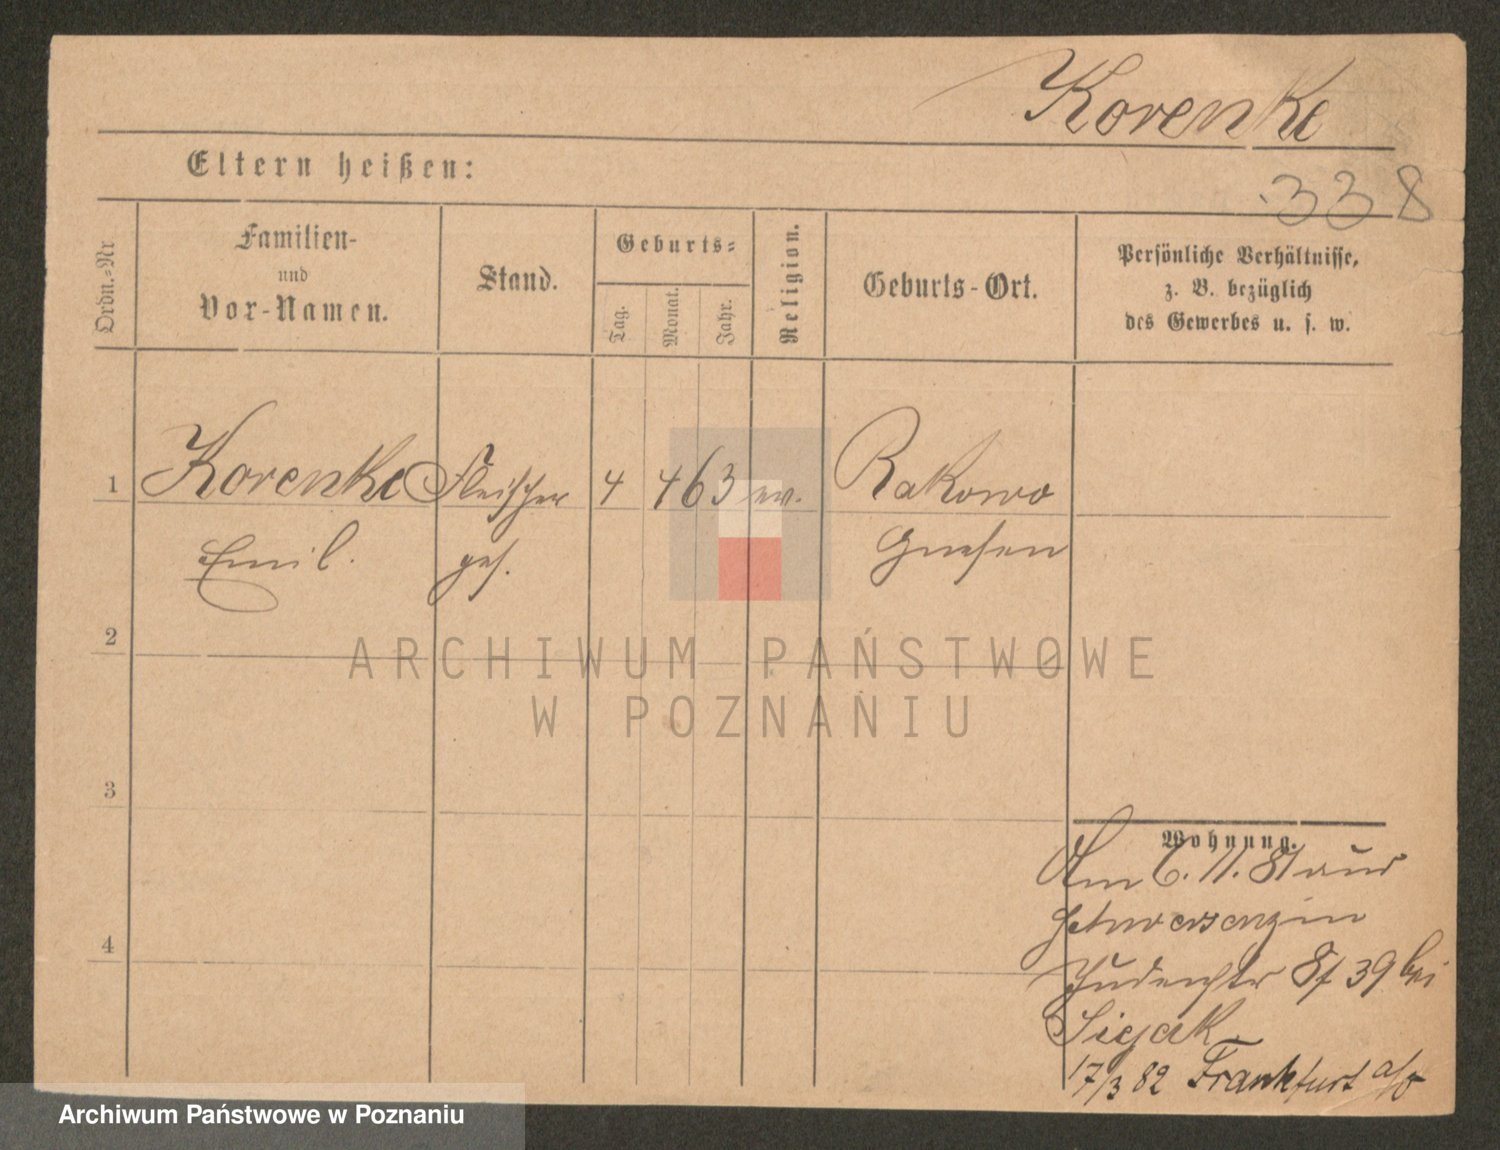 Korenke
Eltern heißen:
338
Ordn.-Nr.
Familien-
und
Vor-Namen.
Stand.
Geburts-
Tag.
Monat.
Jahr.
Religion.
Geburts-Ort.
Persönliche Verhältnisse,
z. B. bezüglich
des Gewerbes u. s. w.
1 Korenke Fleischer 4 4 63 ev. Rakowo
Emil. ges. Gnesen
2
ARCHIWUM PAŃSTWOWE
W POZNANIU
3
Wohnung.
Am 6. 11. 81 aus
Judenstr 8/ 39 bei
Sigak
17/3 82 Frankfurt a/O
4
Archiwum Państwowe w Poznaniu